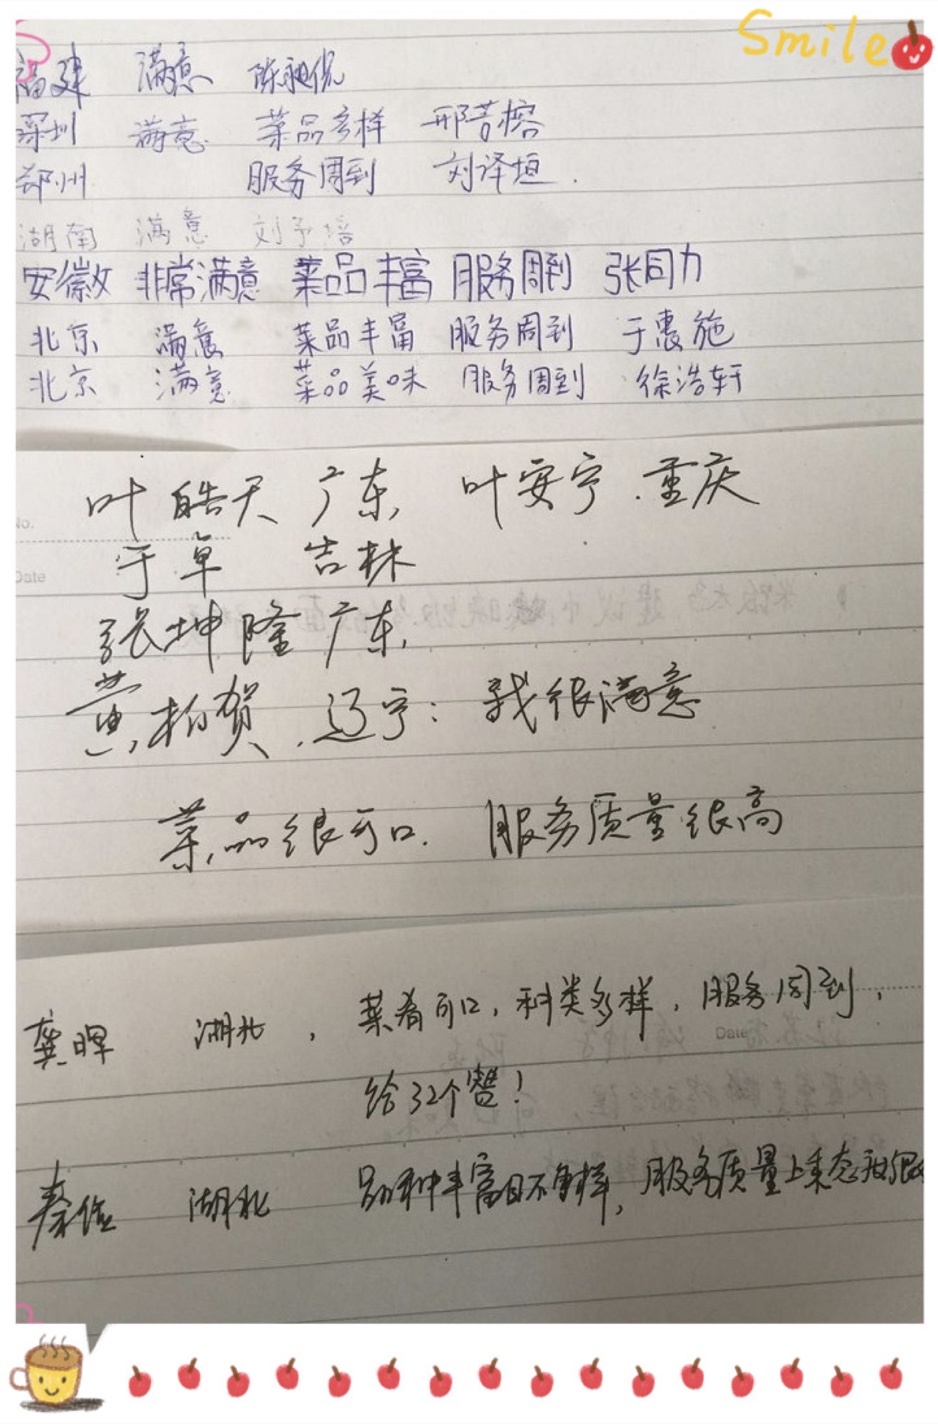 Smile
福建 满意 陈昶优
深圳 满意 菜品多样 邢芳榕
郑州 服务周到 刘译垣.
湖南 满意 刘予培
安徽 非常满意 菜品丰富 服务周到 张同力
北京 满意 菜品丰富 服务周到 于惠施
北京 满意 菜品美味 服务周到 徐浩轩
叶皓天 广东 叶安宁.重庆
No.
于卓 吉林
Date
张坤隆 广东
黄柏贺.辽宁:我很满意
菜品很可口. 服务质量很高
龚晖 湖北,菜肴可口,种类多样,服务周到,
Date
给32个赞!
秦 湖北 品种丰富且不单样,服务质量上乘态